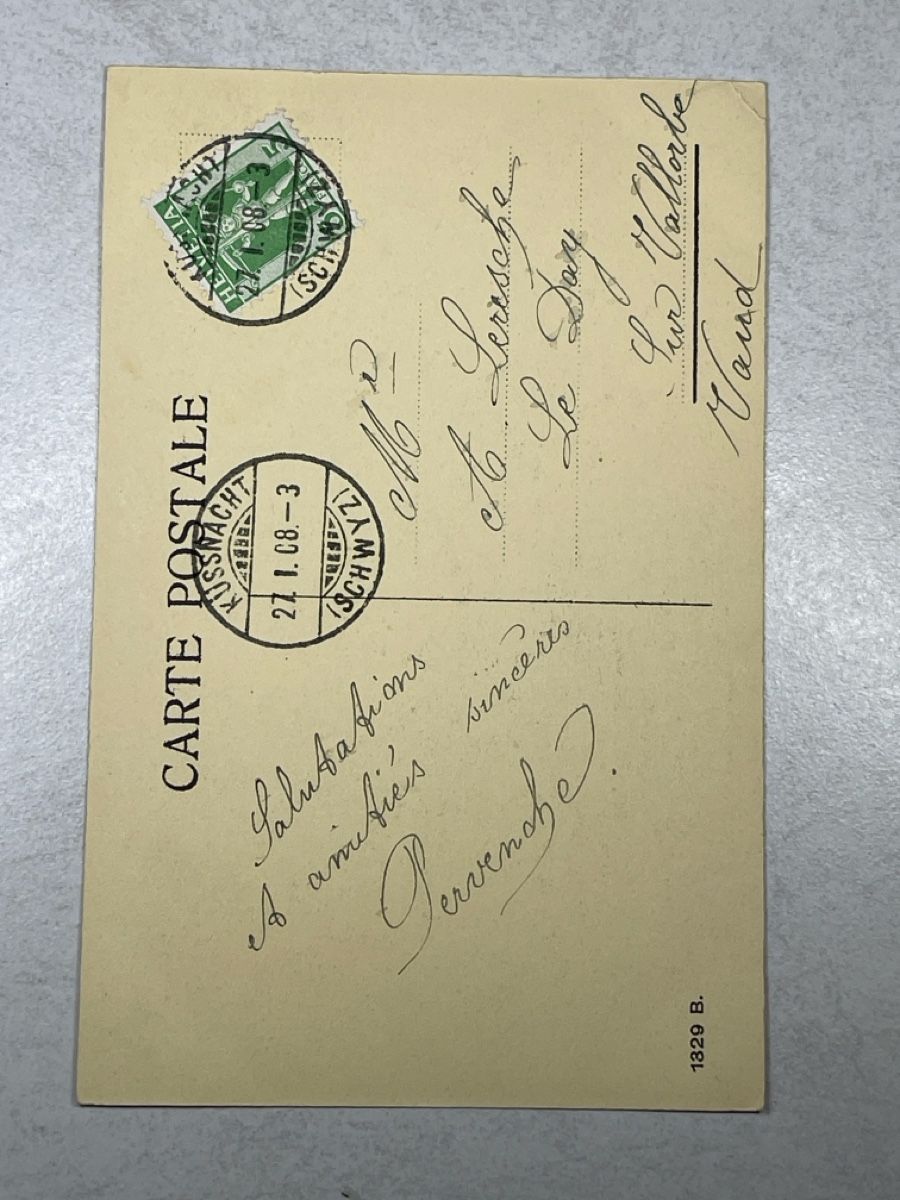 CARTE POSTALE
HELVETIA
KÜSSNACHT
27. I. 08.-3
(SCHWYZ)
KÜSSNACHT
27. I. 08.-3
(SCHWYZ)
Salutations
et amitiés sincères
Pervenche.
Mr
A Leresche
Le Day
Sur Vallorbe
Vaud
1329 B.